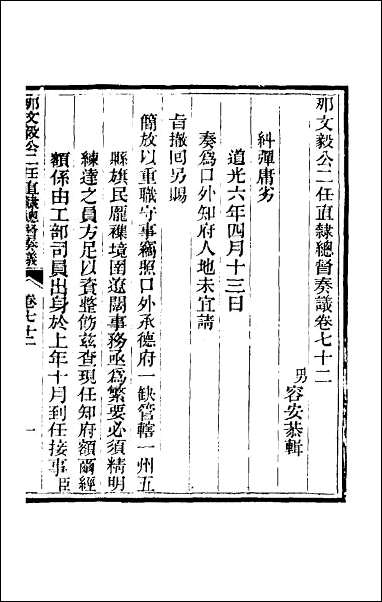 那文毅公二任直隸總督奏議卷七十二
男 容安恭輯
糾彈庸劣
道光六年四月十三日
奏爲口外知府人地未宜請
旨撤回另賜
簡放以重職守事竊照口外承德府一缺管轄一州五
縣旗民龐襍境圉遼闊事務亟爲繁要必須精明
練達之員方足以資整飭茲查現任知府額爾經
額係由工部司員出身於上年十月到任接事臣
那文毅公二任直隸總督奏議 卷七十二 一